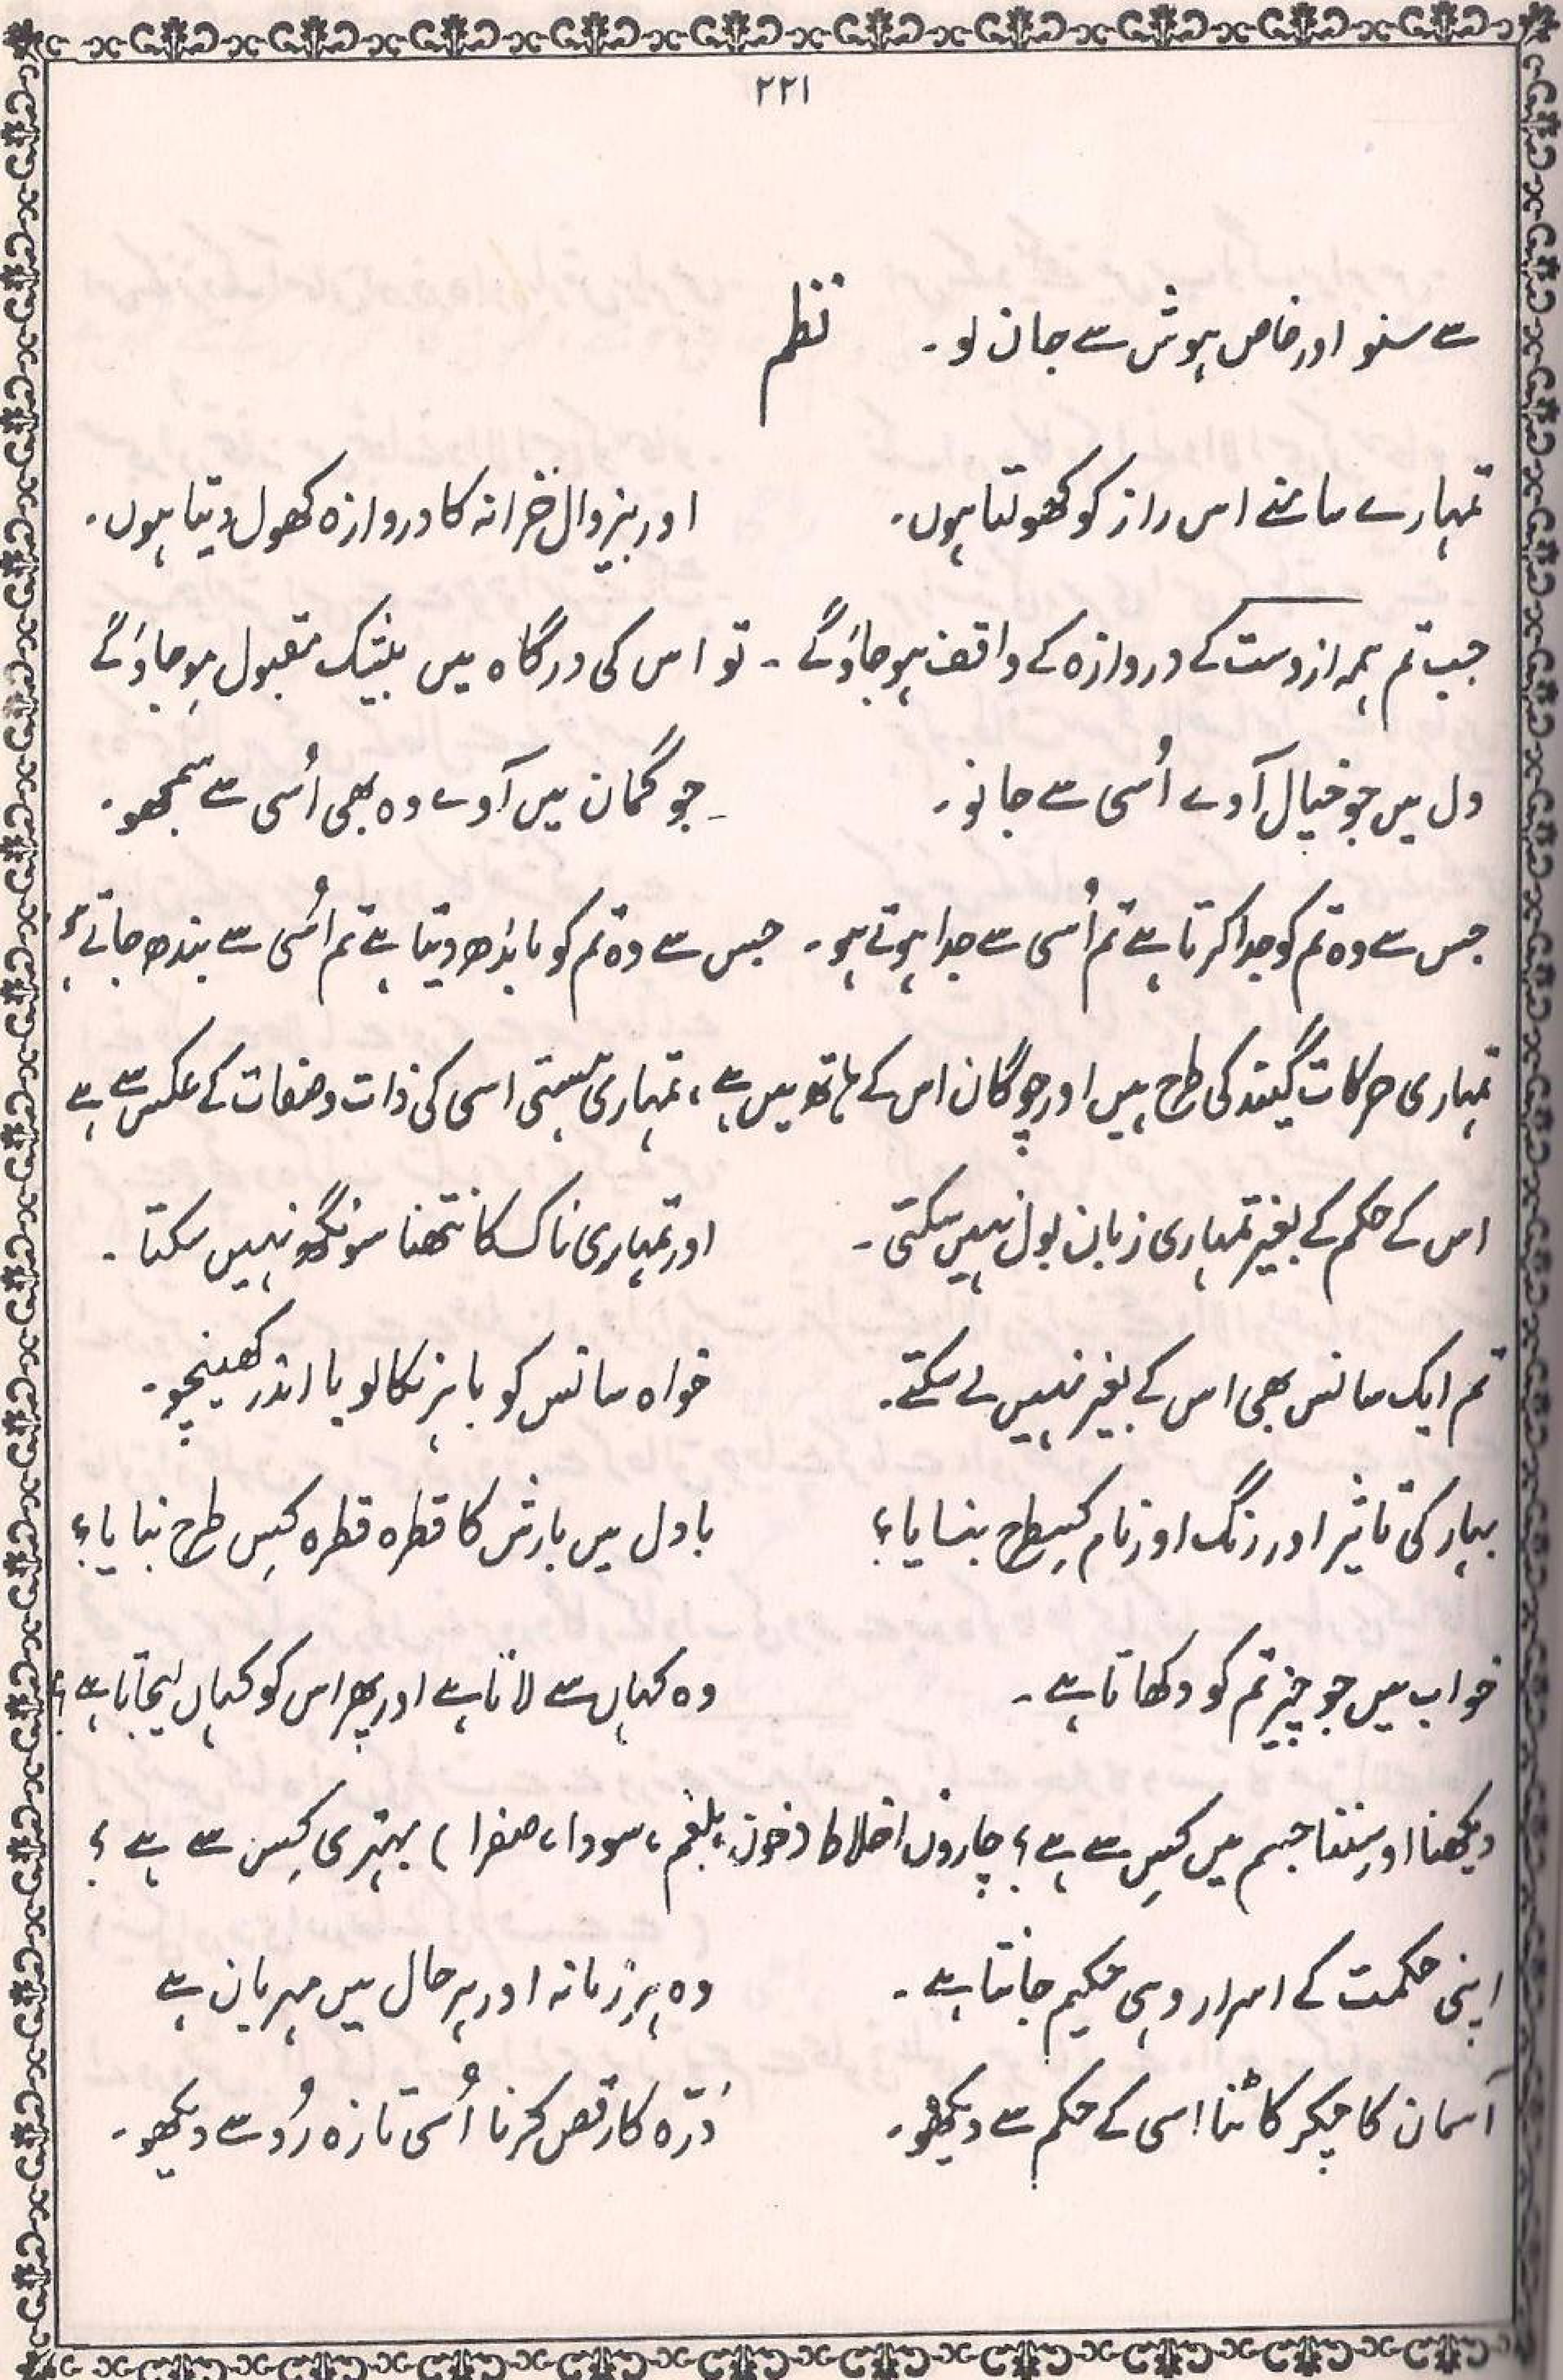 ۲۲۱
سے سنو اور خاص ہوش سے جان لو۔ نظم
تمہارے سامنے اس راز کو کھولتا ہوں۔ اور بیزوال خزانہ کا دروازہ کھول دیتا ہوں۔
جب تم ہمہ ازوست کے دروازہ کے واقف ہو جاؤگے ۔ تو اس کی درگاہ میں بیشک مقبول ہو جاؤگے
دل میں جو خیال آوے اُسی سے جانو۔ جو گمان میں آوے وہ بھی اُسی سے سمجھو۔
جس سے وہ تم کو جدا کرتا ہے تم اُسی سے جدا ہوتے ہو۔ جس سے وہ تم کو باندھ دیتا ہے تم اُسی سے بندھ جاتے ہو
تمہاری حرکات گیند کی طرح ہیں اور چوگان اس کے ہاتھ میں ہے، تمہاری ہستی اسی کی ذات و صفات کے عکس سے ہے
اس کے حکم کے بغیر تمہاری زبان بول نہیں سکتی۔ اور تمہاری ناک کا نتھنا سونگھ نہیں سکتا ۔
تم ایک سانس بھی اس کے بغیر نہیں لے سکتے۔ خواہ سانس کو باہر نکالو یا اندر کھینچو۔
بہار کی تاثیر اور رنگ اور نام کیسطرح بنایا؟ بادل میں بارش کا قطرہ قطرہ کِس طرح بنایا؟
خواب میں جو چیز تم کو دکھاتا ہے۔ وہ کہاں سے لاتا ہے اور پھر اس کو کہاں لیجاتا ہے؟
دیکھنا اور سننا جسم میں کِس سے ہے؟ چاروں اخلاط (خون، بلغم، سودا، صفرا) بہتری کِس سے ہے ؟
اپنی حکمت کے اسرار وہی حکیم جانتا ہے ۔ وہ ہر زمانہ اور ہر حال میں مہربان ہے
آسمان کا چکر کاٹنا اسی کے حکم سے دیکھو۔ ذرّہ کا رقص کرنا اُسی تازہ رُو سے دیکھو۔